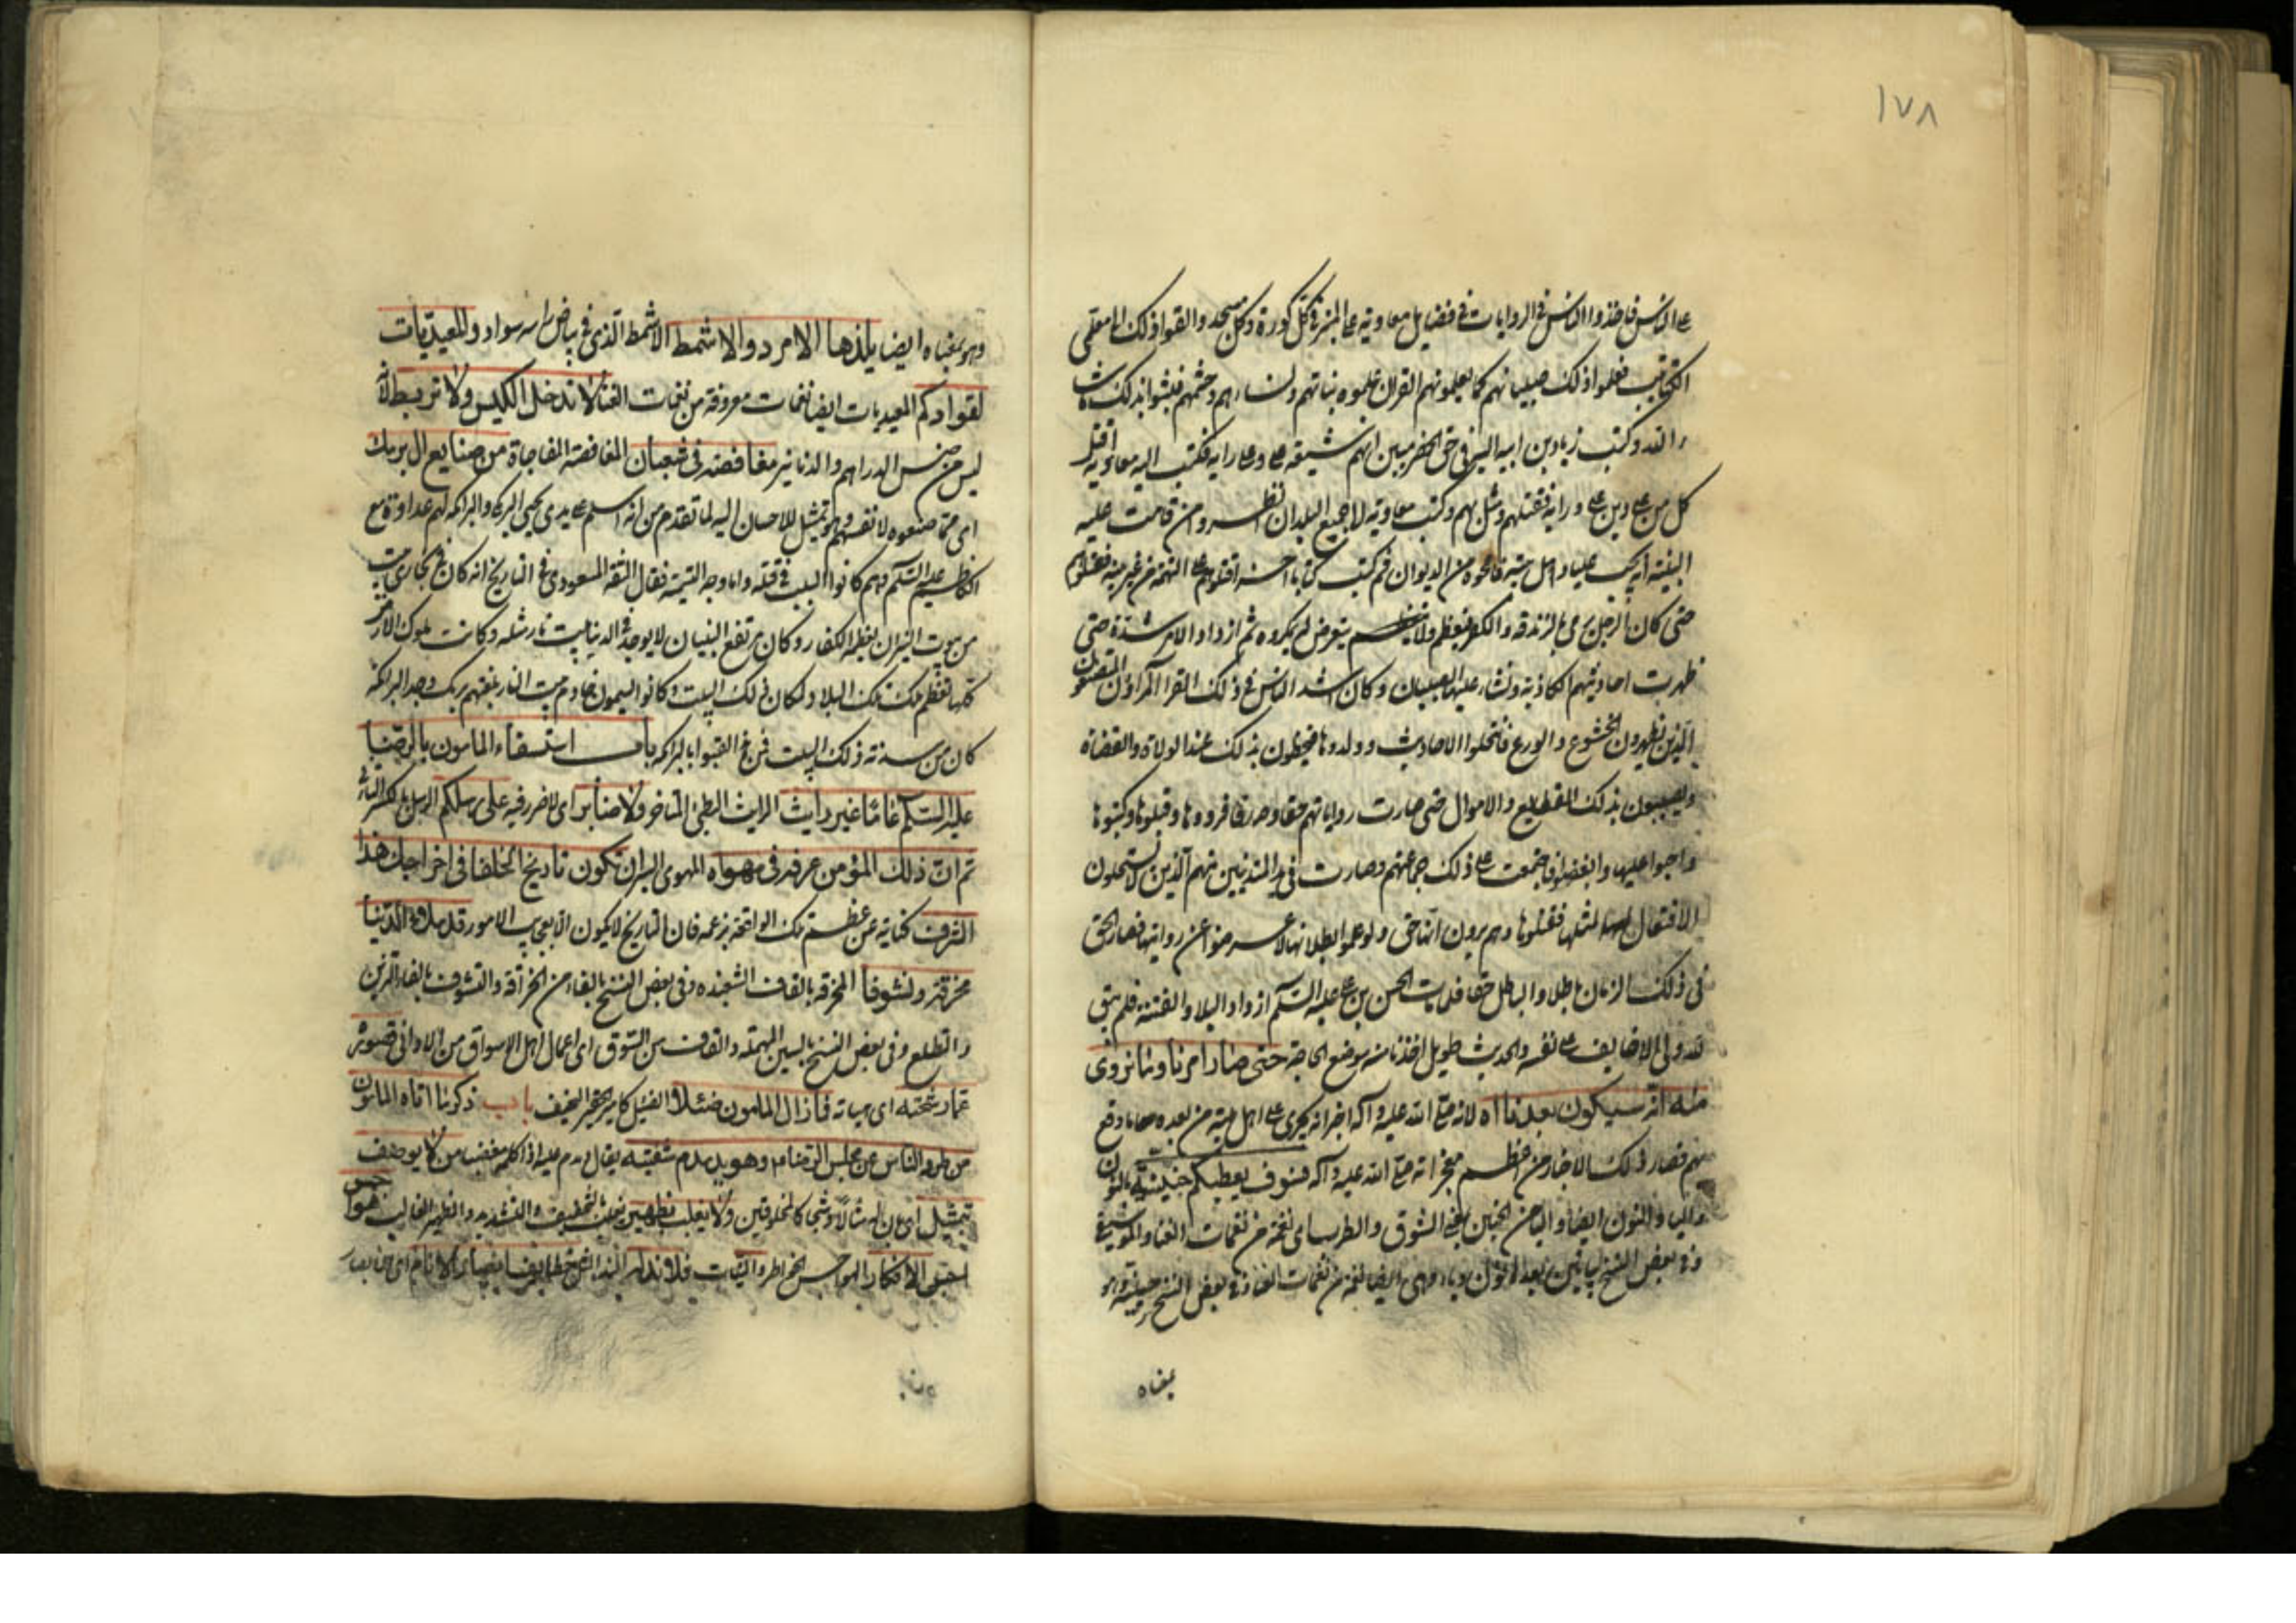 ١٧٨
على الناس فاخذوا الناس في الروايات في فضايل معاوية على المنبر في كل كورة وكل مسجد والقوا ذلك الى معلمي
الكتاتيب فعلموا ذلك صبيانهم كما يعلمونهم القران علموه بناتهم ونساءهم وحشمهم فلبثوا بذلك ما شاء
الله وكتب زياد بن ابيه اليه في حق الحضرميين انهم شيعة على وعلى رايه فكتب اليه معاوية اقتل
كل من على دين على ورايه فقتلهم ومثل بهم وكتب معاوية الى جميع البلدان انظروا من قامت عليه
البينة انه يحب عليا واهل بيته فامحوه من الديوان ثم كتب كتابا اخر اقتلوهم على التهمة من غير بينة فقتلوهم
حتى كان الرجل يرمى بالزندقة والكفر فيعظم ولا يتعرض له بمكروه ثم ازداد الامر شدة حتى
ظهرت احاديثهم الكاذبة ونشاء عليها الصبيان وكان اشد الناس في ذلك القراء المراؤن المتصنعون
الذين يظهرون الخشوع والورع فانتحلوا الاحاديث وولدوها فيحظون بذلك عند الولاة والقضاة
ويصيبون بذلك القطايع والاموال حتى صارت رواياتهم حقا وصدقا فرووها وقبلوها وكتبوها
واحبوا عليها وابغضوا فاجتمعت على ذلك جماعتهم وصارت في يد المتدينين منهم الذين لا يستحلون
الافتعال لمثلها فقبلوها وهم يرون انها حق ولو علموا بطلانها لاعرضوا عن روايتها فصار الحق
في ذلك الزمان باطلا والباطل حقا فلما مات الحسن بن على عليه السلم ازداد البلاء والفتنة فلم يبق
لله ولى الا خايف على نفسه والحديث طويل اخذنا منه موضع الحاجة حتى صار امرنا وما نروى
منه انه سيكون بعدنا اه لانه صلى الله عليه وآله اخبر انه يجرى على اهل بيته من بعده ما وقع
بهم فصار ذلك الاخبار من اعظم معجزاته صلى الله عليه وآله فسوف يعطيكم حنينة بالنون
والياء والنون ايضا والياء من الحنين بمعنى الشوق والطرب اى نغمة من نغمات الغناء والموسيقى
وفي بعض النسخ بيائين بعد النون وباء وهى ايضا نغمة من نغمات الغناء وفي بعض النسخ
بمعناه
وهو بمعناه ايضا يلذها الامرد والاشمط الاشمط الذى في بياض راسه سواد والمعيديات
لقوادكم المعيديات ايضا نغمات معروفة من نغمات الغناء لا تدخل الكيس ولا تربط لانه
ليس من جنس الدراهم والدنانير مغافصة في شعبان المغافصة المفاجاة من صنايع ال برمك
اى مما صنعوه لانفسهم وهو تمثيل للاحسان اليه لما تقدم من انه اسلم على يدى يحيى البرمكى والبرامكة لهم عداوة مع
الكاظم عليه السلم وهم كانوا السبب في قتله واما وجه التسمية فقال الثقة المسعودى في التاريخ انه كان
من بيوت النيران يعظمه الكفار وكان مرتفع البنيان لا يوجد في الدنيا بيت نار مثله وكانت ملوك الارض
كلها تعظم تلك البلاد لمكان ذلك البيت وكانوا يسمون خادم بيت النار بلغتهم برمك وجد البرامكة
كان من سدنة ذلك البيت فمن ثم القبوا بالبرامكة باب استسقاء المامون بالرضا
عليه السلم عاما غير رايث الرايث البطئ المتاخر ولا ضاير اى لا ضرر فيه على رسلكم الرسل بكسر الراء
ثم ان ذلك المؤمن عرفه في مهواه المهوى البئر ان تكون تاريخ الخلفاء في اخراجك هذا
الشرف كناية عن عظم تلك الواقعة بزعمه فان التاريخ لا يكون الا بعجايب الامور قد ملاء الدنيا
مخرقة وتشوفا المخرقة بالقاف الشعبذة وفي بعض النسخ بالفاء من الخرافة والتشوف بالفاء التزين
والتطلع وفي بعض النسخ بالسين المهملة والقاف من السوق اى اعمال اهل الاسواق من الاداني قصوره
عما رشحته اى هياته فما زال المامون ضئيلا الضئيل كامير الحقير النحيف باب ذكر ما اتاه المامون
من طرد الناس عن مجلس الرضا عليه السلام وهو يدمدم شفتيه يقال دمدم عليه اذا كلمه مغضبا من لا يوصف
بتمثيل اى بان له مثالا وشبها كالمخلوقين ولا يغلب بظهير يغلب بالتخفيف والتشديد والظهير الغالب هواجس
لحق الافكار الهواجس الخواطر والنيات فلا ند له الند المثل خطايف ابصار الانام